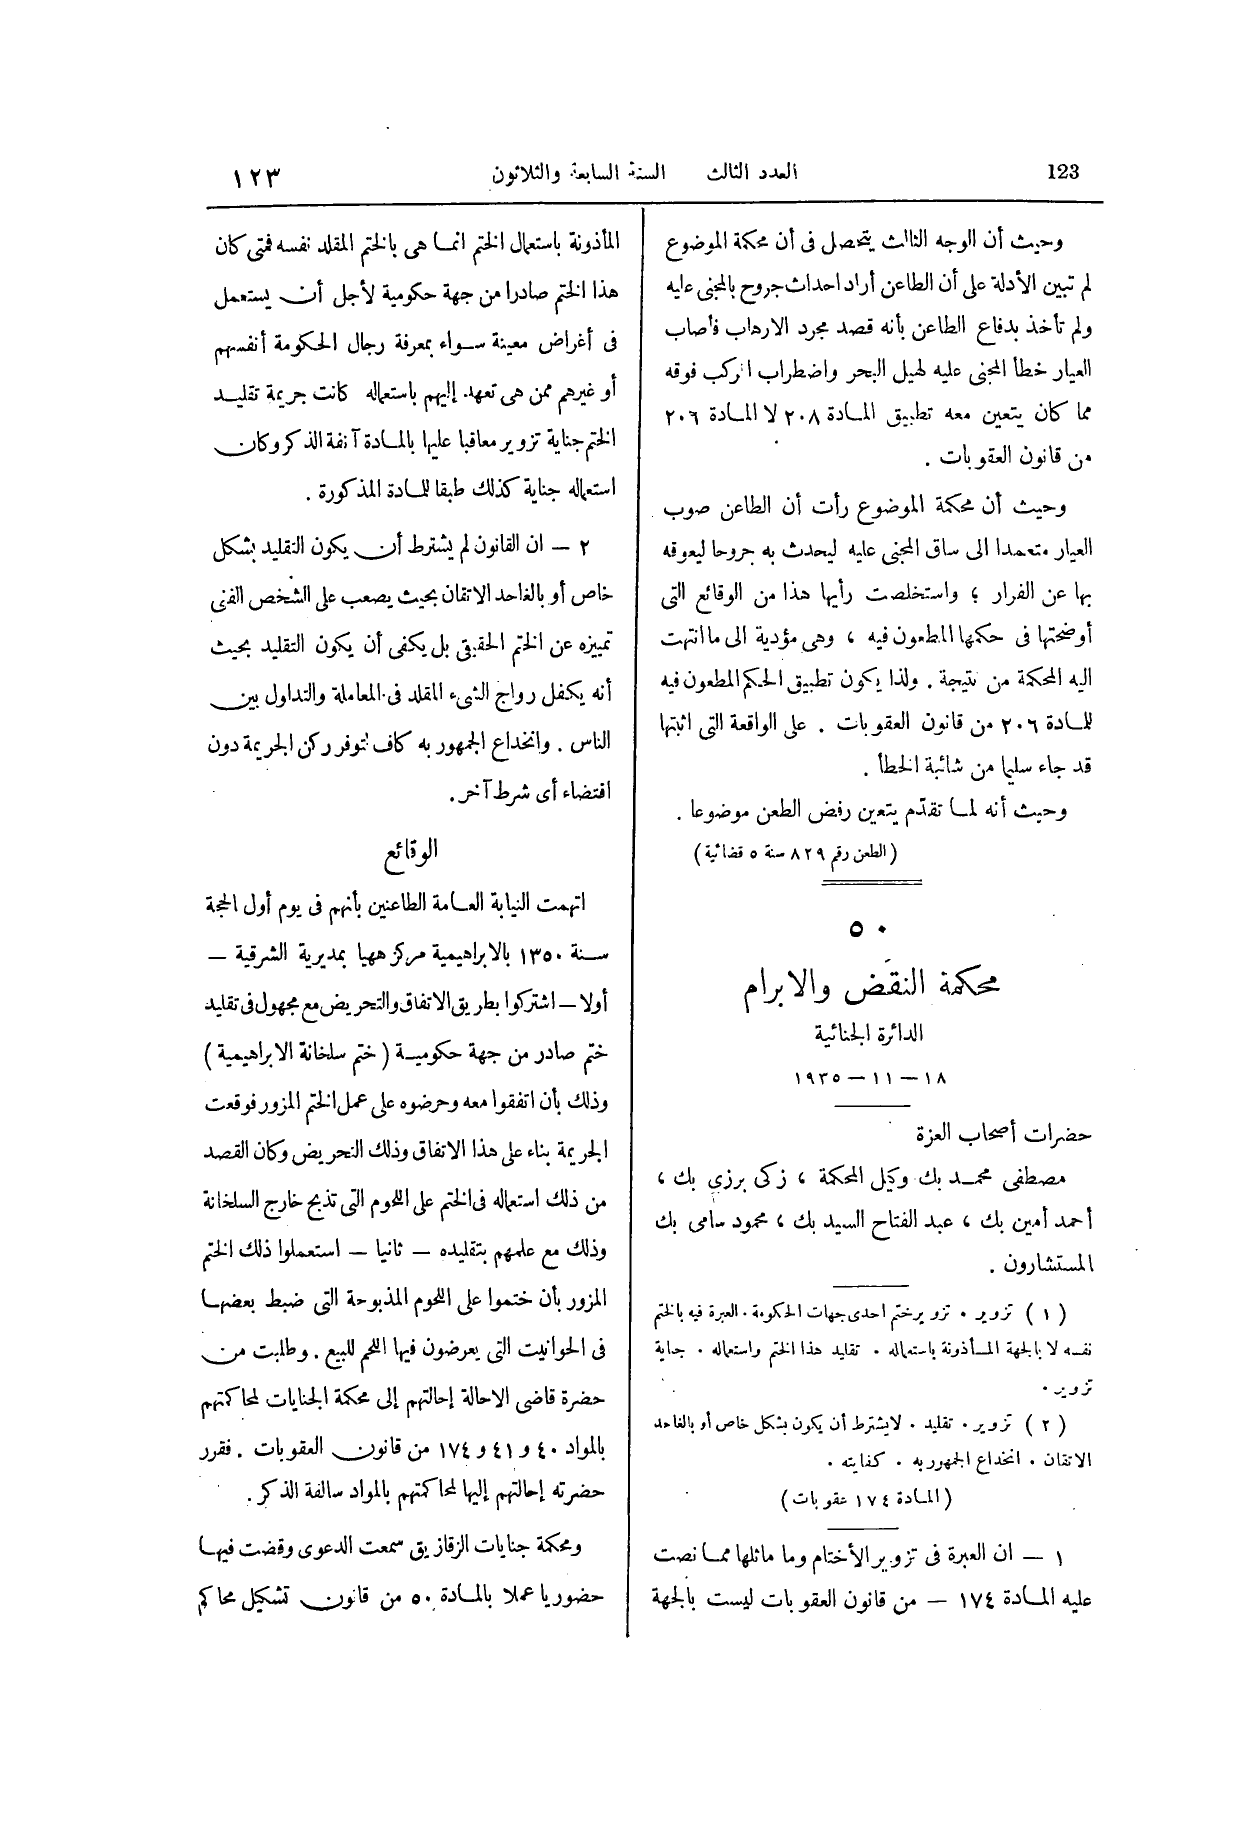 123 العدد الثالث السنة السابعة والثلاثون ١٢٣
وحيث أن الوجه الثالث يتحصل فى أن محكمة الموضوع
لم تبين الأدلة على أن الطاعن أراد احداث جروح بالمجنى عليه
ولم تأخذ بدفاع الطاعن بأنه قصد مجرد الارهاب فأصاب
العيار خطأ المجنى عليه لهيل البحر واضطراب الركب فوقه
مما كان يتعين معه تطبيق المادة ٢٠٨ لا المادة ٢٠٦
من قانون العقوبات .
وحيث أن محكمة الموضوع رأت أن الطاعن صوب
العيار متعمدا الى ساق المجنى عليه ليحدث به جروحا ليعوقه
بها عن الفرار ؛ واستخلصت رأيها هذا من الوقائع التى
أوضحتها فى حكمها المطعون فيه ، وهى مؤدية الى ما انتهت
اليه المحكمة من نتيجة . ولذا يكون تطبيق الحكم المطعون فيه
للمادة ٢٠٦ من قانون العقوبات . على الواقعة التى اثبتها
قد جاء سليما من شائبة الخطأ .
وحيث أنه لما تقدّم يتعين رفض الطعن موضوعا .
(الطعن رقم ٨٢٩ سنة ٥ قضائية)
٥٠
محكمة النقض والابرام
الدائرة الجنائية
١٨ — ١١ — ١٩٣٥
حضرات أصحاب العزة
مصطفى محمد بك وكيل المحكمة ، زكى برزي بك ،
أحمد أمين بك ، عبد الفتاح السيد بك ، محمود سامى بك
المستشارون .
(١) تزوير . تزوير ختم احدى جهات الحكومة . العبرة فيه بالختم
نفسه لا بالجهة المأذونة باستعماله . تقليد هذا الختم واستعماله . جناية
تزوير .
(٢) تزوير . تقليد . لا يشترط أن يكون بشكل خاص أو بالغا حد
الاتقان . انخداع الجمهور به . كفايته .
(المادة ١٧٤ عقوبات)
١ — ان العبرة فى تزوير الأختام وما ماثلها مما نصت
عليه المادة ١٧٤ — من قانون العقوبات ليست بالجهة
المأذونة باستعمال الختم انما هى بالختم المقلد نفسه فمتى كان
هذا الختم صادرا من جهة حكومية لأجل أن يستعمل
فى أغراض معينة سواء بمعرفة رجال الحكومة أنفسهم
أو غيرهم ممن هى تعهد إليهم باستعماله كانت جريمة تقليد
الختم جناية تزوير معاقبا عليها بالمادة آنفة الذكر وكان
استعماله جناية كذلك طبقا للمادة المذكورة .
٢ — ان القانون لم يشترط أن يكون التقليد بشكل
خاص أو بالغا حد الاتقان بحيث يصعب على الشخص الفنى
تمييزه عن الختم الحقيقى بل يكفى أن يكون التقليد بحيث
أنه يكفل رواج الشىء المقلد فى المعاملة والتداول بين
الناس . وانخداع الجمهور به كاف لتوفر ركن الجريمة دون
اقتضاء أى شرط آخر .
الوقائع
اتهمت النيابة العامة الطاعنين بأنهم فى يوم أول الحجة
سنة ١٣٥٠ بالابراهيمية مركز ههيا بمديرية الشرقية —
أولا — اشتركوا بطريق الاتفاق والتحريض مع مجهول فى تقليد
ختم صادر من جهة حكومية (ختم سلخانة الابراهيمية)
وذلك بأن اتفقوا معه وحرضوه على عمل الختم المزور فوقعت
الجريمة بناء على هذا الاتفاق وذلك التحريض وكان القصد
من ذلك استعماله فى الختم على اللحوم التى تذبح خارج السلخانة
وذلك مع علمهم بتقليده — ثانيا — استعملوا ذلك الختم
المزور بأن ختموا على اللحوم المذبوحة التى ضبط بعضها
فى الحوانيت التى يعرضون فيها اللحم للبيع . وطلبت من
حضرة قاضى الاحالة إحالتهم إلى محكمة الجنايات لمحاكمتهم
بالمواد ٤٠ و ٤١ و ١٧٤ من قانون العقوبات . فقرر
حضرته إحالتهم إليها لمحاكمتهم بالمواد سالفة الذكر .
ومحكمة جنايات الزقازيق سمعت الدعوى وقضت فيها
حضوريا عملا بالمادة ٥٠ من قانون تشكيل محاكم